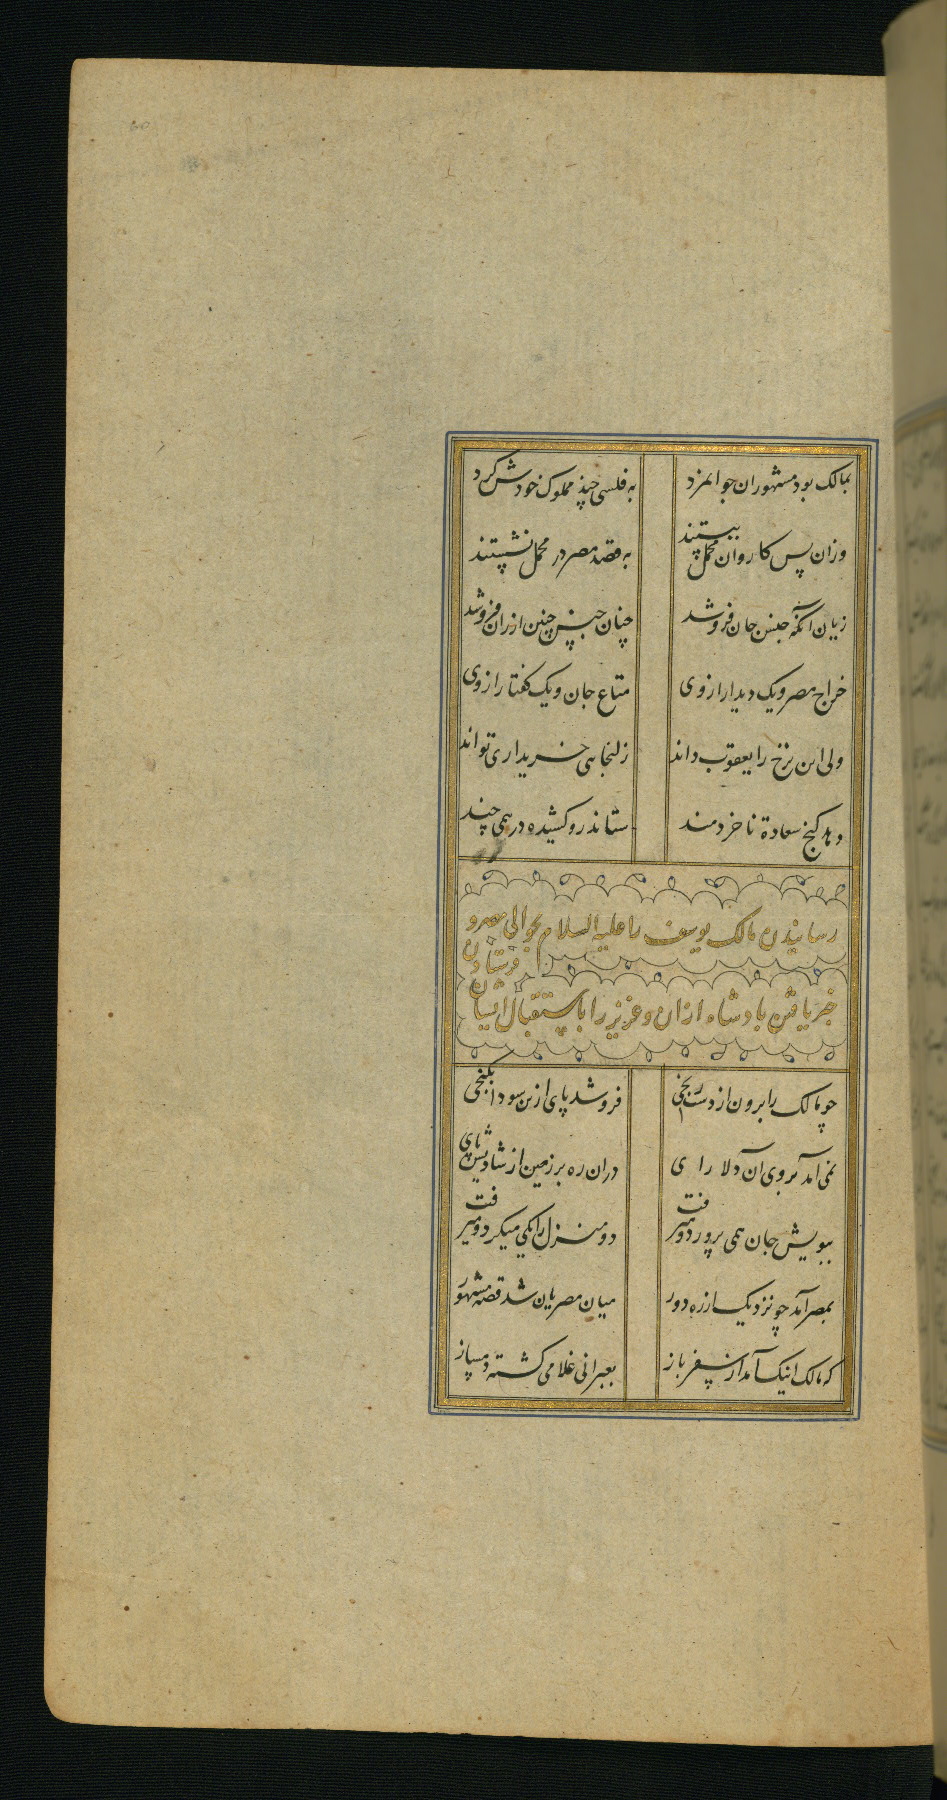 بمالک بود مشهور ان جوانمرد به فلسی چند مملوک خودش کرد
وزان پس کاروان محمل ببستند به قصد مصر در محمل نشستند
زیان انکه جنس جان فروشد چنان جنس چنین ارزان فروشد
خراج مصر و یک دیدار از وی متاع جان و یک گفتار از وی
ولی این نرخ را یعقوب داند زلیخا هی خریداری تواند
دهد گنج سعادة ناخردمند ستاند رو کشیده درهمی چند
رسانیدن مالک یوسف را علیه السلام بحوالی مصر و
خبر یافتن بادشاه ازان و عزیز را باستقبال ایشان فرستادن
چو مالک را برون از دست رنجی فروشد پای ازین سودا بگنجی
نمی آمد بروی آن دلا رای دران ره بر زمین از شادیش پای
ببویش جان همی پرورد و میرفت دو منزل را یکی میکرد و میرفت
بمصر آمد چو نزدیک از ره دور میان مصریان شد قصه مشهور
که مالک اینک آمد از سفر باز بعبرانی غلامی گشته دمساز